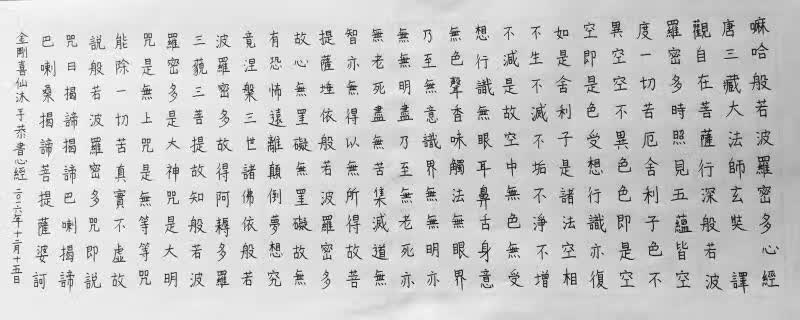 嘛哈般若波羅密多心經
唐三藏大法師玄奘 譯
觀自在菩薩行深般若波
羅密多時照見五蘊皆空
度一切苦厄舍利子色不
異空空不異色色即是空
空即是色受想行識亦復
如是舍利子是諸法空相
不生不滅不垢不淨不增
不減是故空中無色無受
想行識無眼耳鼻舌身意
無色聲香味觸法無眼界
乃至無意識界無無明亦
無無明盡乃至無老死亦
無老死盡無苦集滅道無
智亦無得以無所得故菩
提薩埵依般若波羅密多
故心無罣礙無罣礙故無
有恐怖遠離顛倒夢想究
竟涅槃三世諸佛依般若
波羅密多故得阿耨多羅
三藐三菩提故知般若波
羅密多是大神咒是大明
咒是無上咒是無等等咒
能除一切苦真實不虛故
說般若波羅密多咒即說
咒曰揭諦揭諦巴喇揭諦
巴喇桑揭諦菩提薩婆訶
金剛喜仙沐手恭書心經二〇一六年十二月十五日